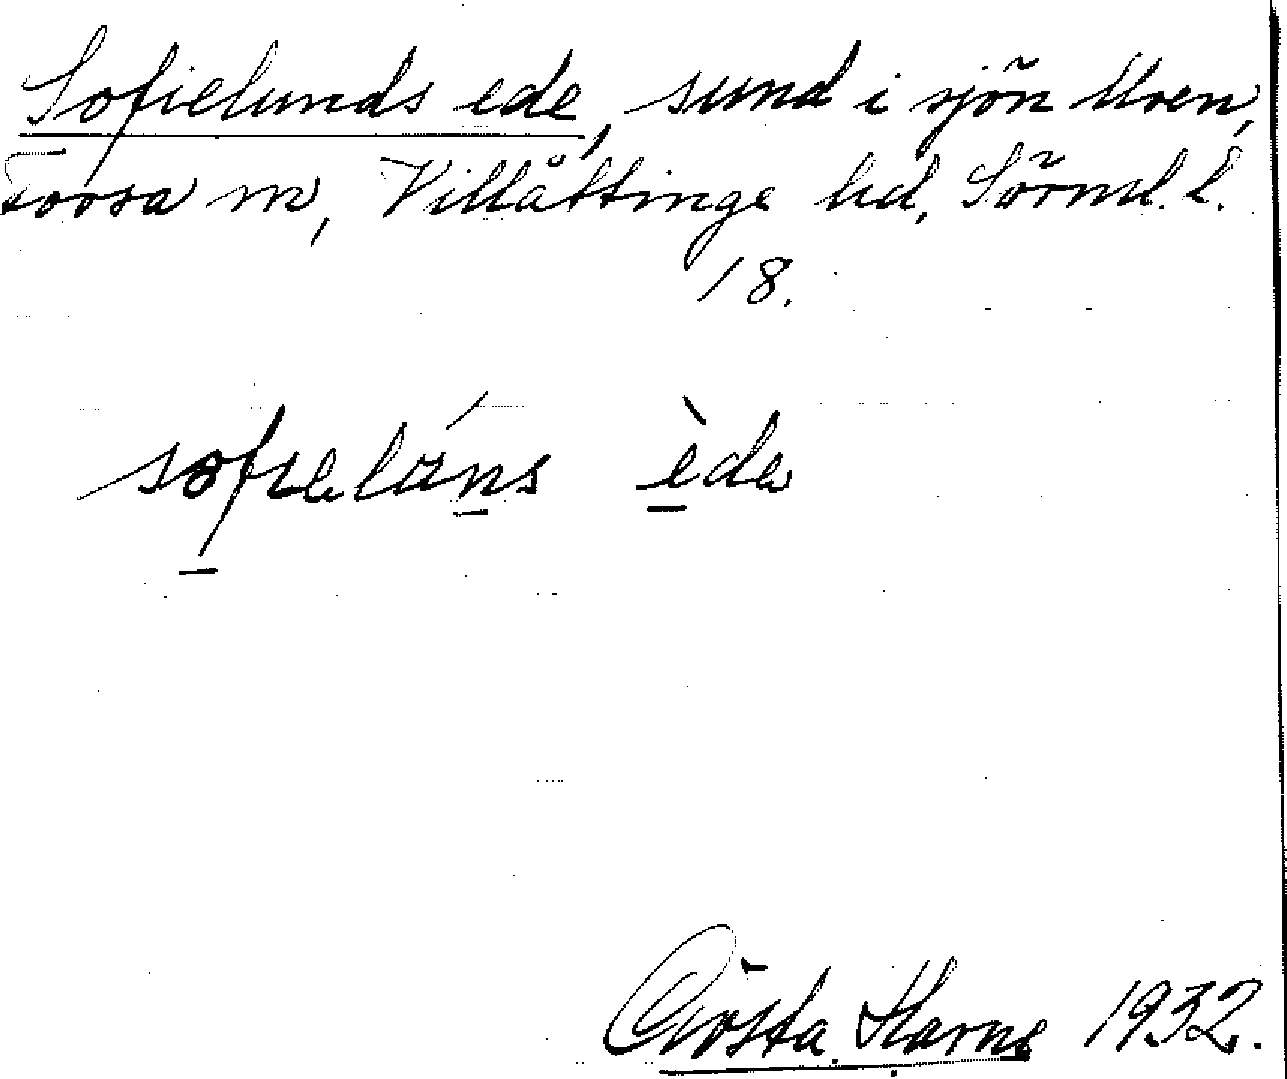 Sofielunds ede, sund i sjön Uven,
Forssa sn, Villåttinge hd, Sörml. l.
18.
sofielúns èda
Gösta Harne 1932.